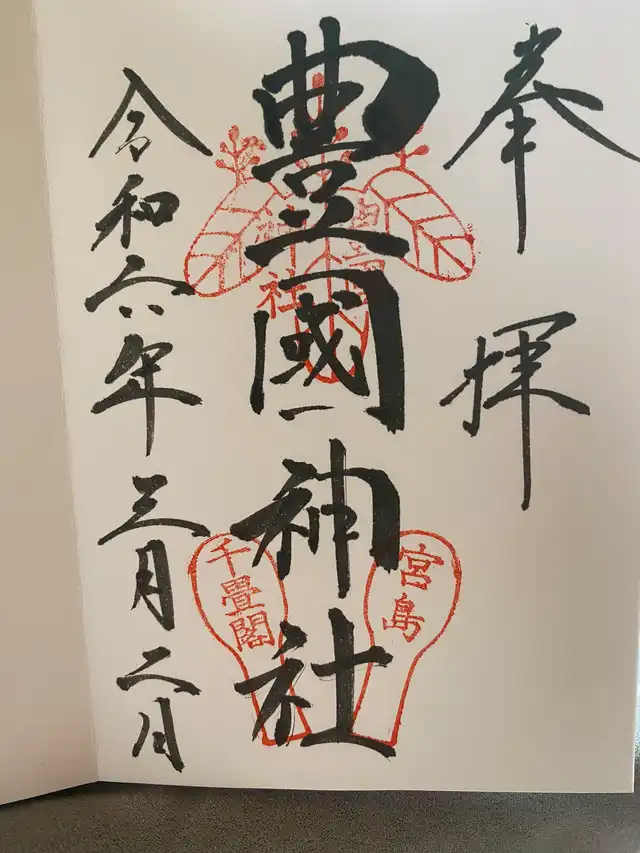 奉拝
豊國神社
宮島
千畳閣
令和六年三月二日